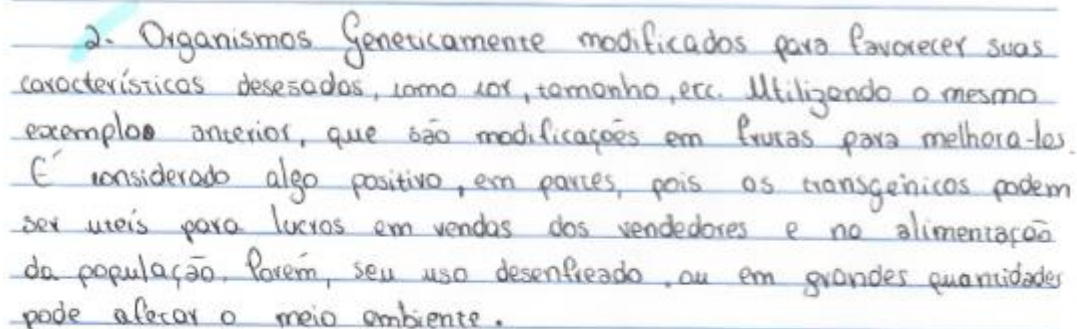 2- Organismos Geneticamente modificados para favorecer suas
características desesadas, como cor, tamanho, etc. Utilizando o mesmo
exemplo anterior, que são modificações em frutas para melhora-las.
É considerado algo positivo, em partes, pois os transgênicos podem
ser uteis para lucros em vendas dos vendedores e na alimentação
da população. Porém, seu uso desenfreado, ou em grandes quantidades
pode afetar o meio ambiente.